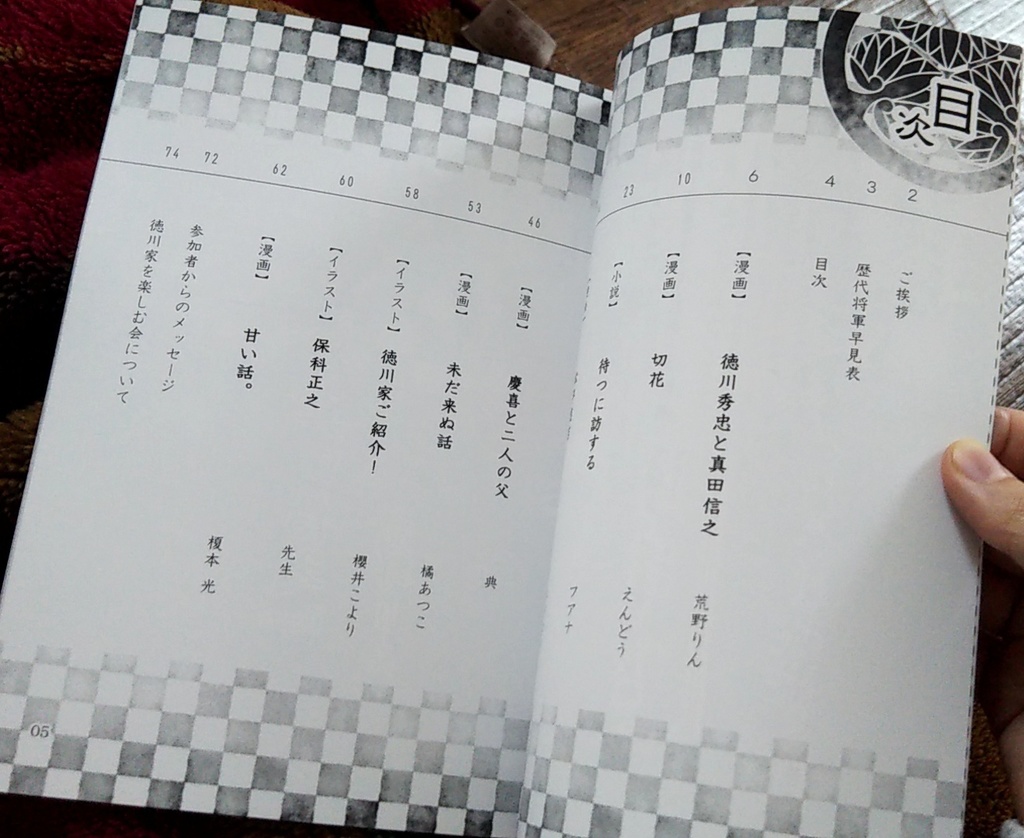 目次
2 ご挨拶
3 歴代将軍早見表
4 目次
6 【漫画】 徳川秀忠と真田信之 荒野りん
10 【漫画】 切花 えんどう
23 【小説】 待つに訪する フアナ
46 【漫画】 慶喜と二人の父 典
53 【漫画】 未だ来ぬ話 橘あつこ
58 【イラスト】 徳川家ご紹介！ 櫻井こより
60 【イラスト】 保科正之 先生
62 【漫画】 甘い話。 榎本 光
72 参加者からのメッセージ
74 徳川家を楽しむ会について
05